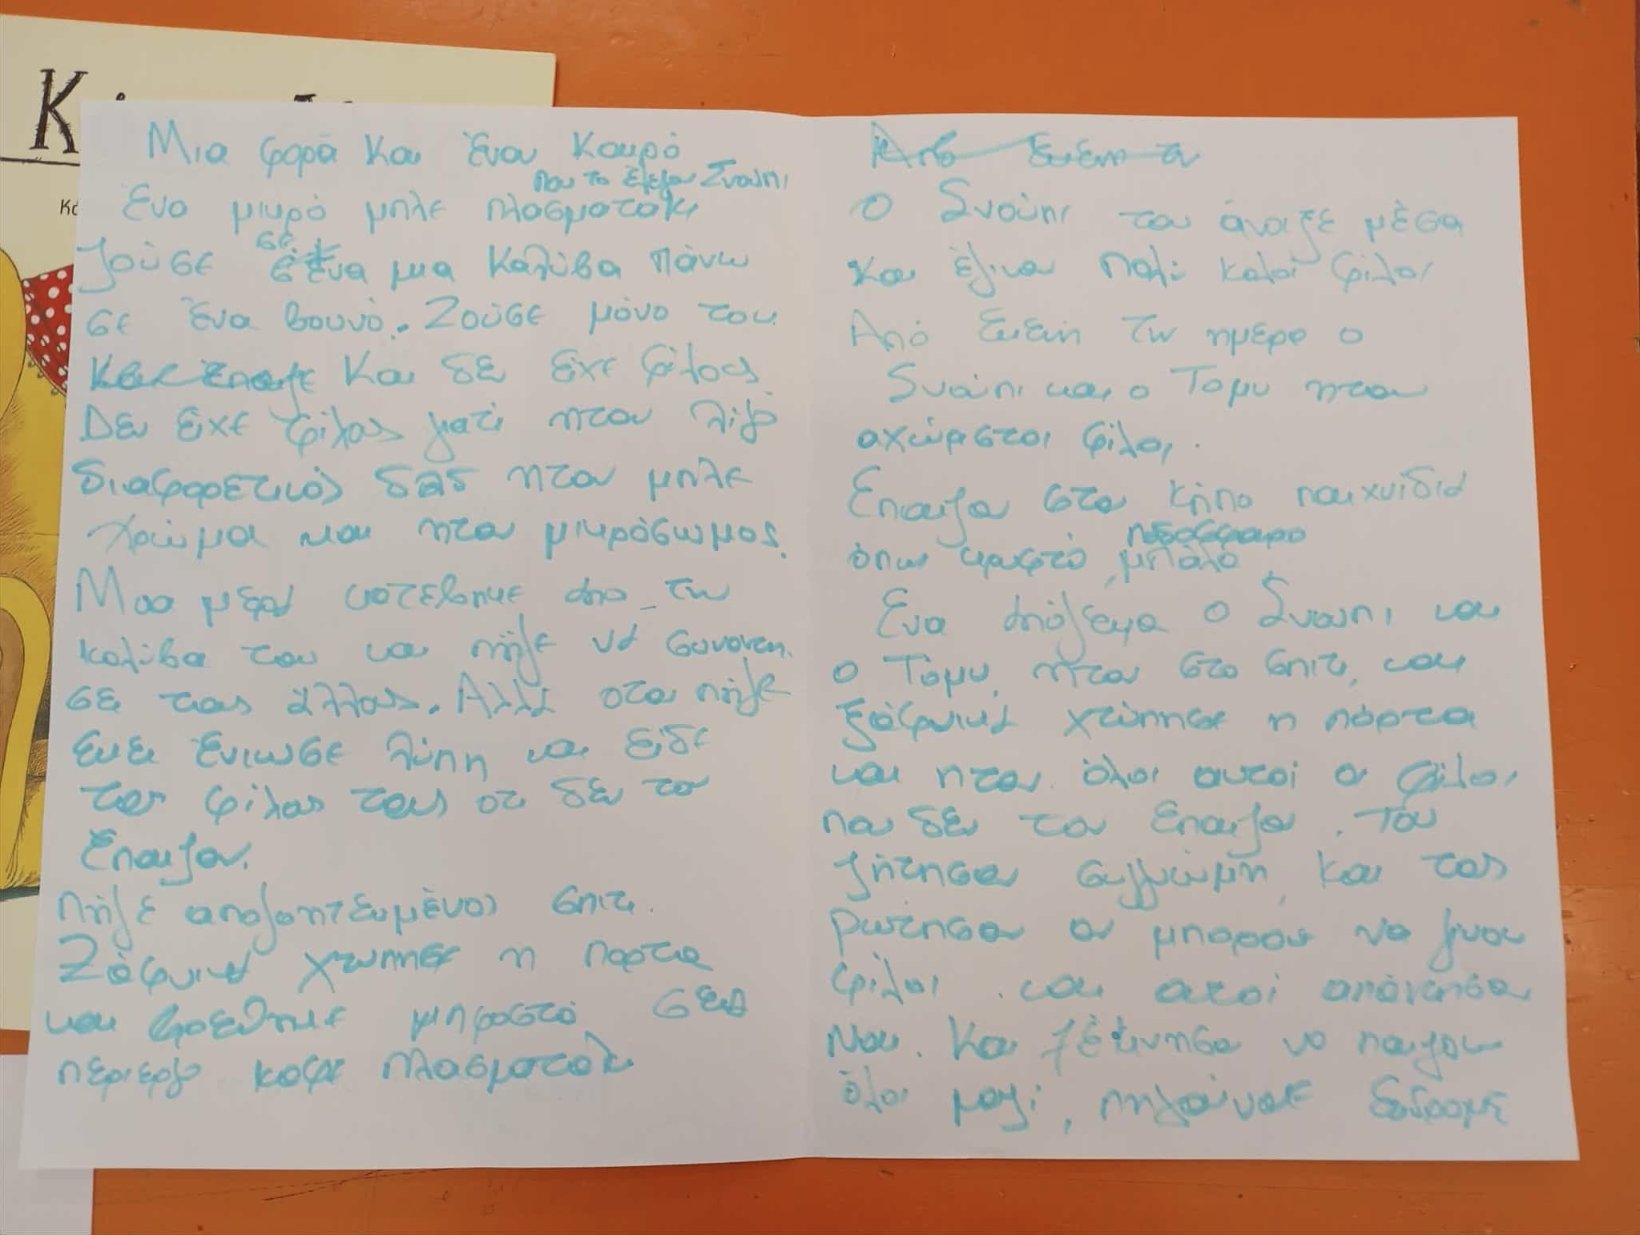 Μια φορά και έναν καιρό
που το έλεγαν Σνούπι
ένα μικρό μπλε πλασματάκι
ζούσε σε μια καλύβα πάνω
σε ένα βουνό. Ζούσε μόνο του
και δε είχε φίλους
Δεν είχε φίλους γιατί ηταν λίγο
διαφορετικός ηταν μπλε
χρώμα και ηταν μικρόσωμος.
Μια μέρα κατέβηκε απο τη
καλύβα του και πήγε να συναντη
σε τους άλλους. Αλλά οταν πήγε
εκει ένιωσε λύπη και είδε
τους φίλους τους οτι δεν το
επαιζαν.
Πήγε απογοητευμένος σπιτι.
Ξάφνικα χτυπησε η πορτα
και βρεθηκε μπροστά σε ενα
περιεργο καφε πλασματακι
Ο Σνούπι του άνοιξε μέσα
και έγιναν πολύ καλοί φίλοι
Από εκεινη την ημερα ο
Σνουπι και ο Τομυ ηταν
αχώριστοι φίλοι.
Επαιζαν στο κήπο παιχνιδια
ποδοσφαρο
όπως κρυφτό, μπάλα,
Ενα απόγευμα ο Σνουπι και
ο Τόμυ ηταν στο σπιτι, και
ξάφνικα χτύπησε η πόρτα
και ηταν όλοι αυτοί οι φίλοι
που δεν τον επαιζαν. Του
ζήτησαν συγγνώμη και τους
ρώτησαν αν μπορουν να γινουν
φίλοι. και αυτοί απάντησαν
Ναι. Και ξεκίνησαν να παιζουν
όλοι μαζί,